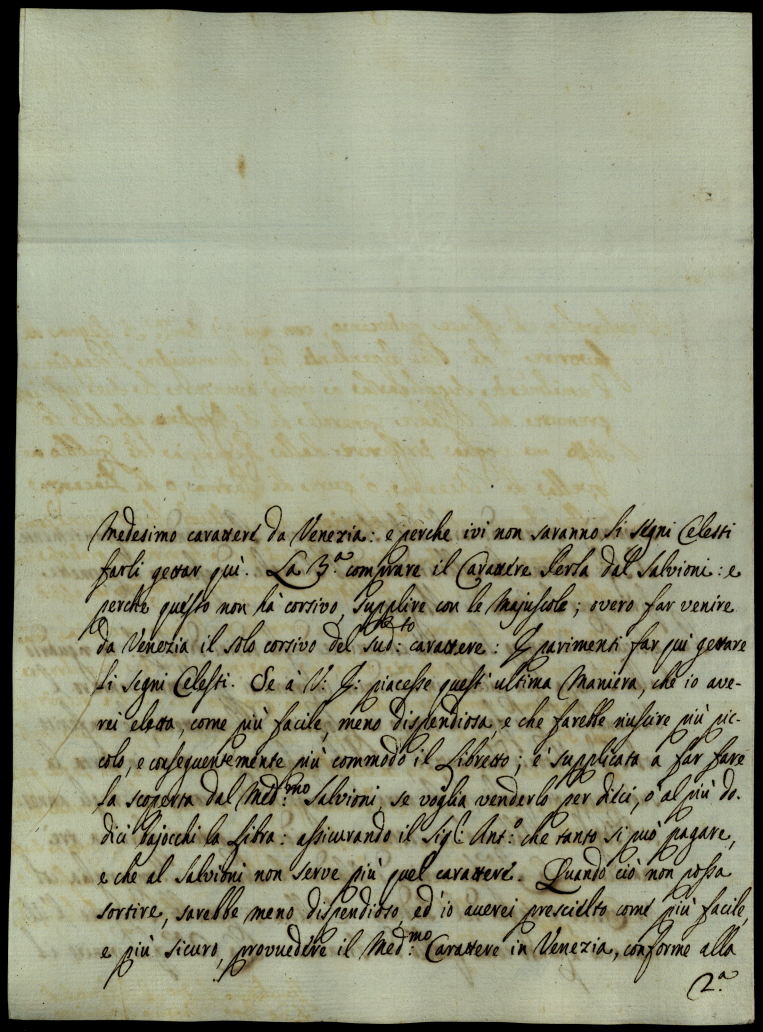 Medesimo carattere da Venezia: e perche ivi non saranno li segni Celesti
farli gettar quì. La 3.ª comprare il Carattere Perla dal Salvioni: e
perche questo non hà corsivo, supplire con le Majuscole; overo far venire
da Venezia il solo corsivo del Sud:to carattere: E parimenti far quì gettare
li segni Celesti. Se à V: E: piacesse quest' ultima Maniera, che io ave-
rei eletta, come più facile, meno dispendiosa, e che farebbe riuscire più pic-
colo, e conseguentemente più commodo il Libretto; e' supplicata a far fare
la scoperta dal Med:mo Salvioni, se voglia venderlo per dieci, ò al più do-
dici bajocchi la Libra: assicurando il Sig: Ant:o che tanto si può pagare,
e che al Salvioni non serve più quel carattere. Quando ciò non possa
sortire, sarebbe meno dispendioso, ed io averei prescielto come più facile,
e più sicuro, provvedere il Med:mo Carattere in Venezia, conforme alla
2.ª